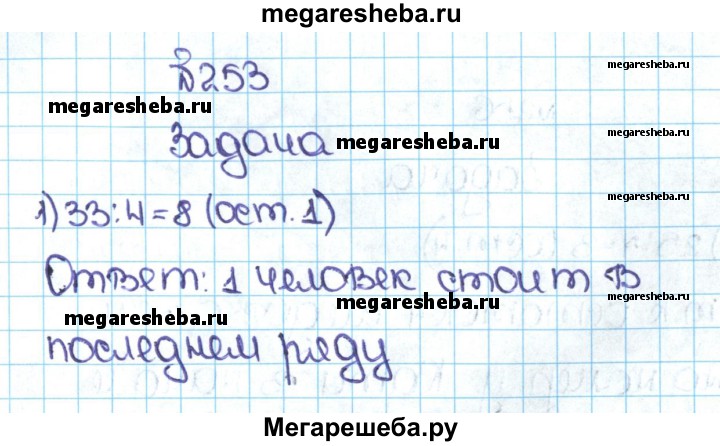 megaresheba.ru
№253
megaresheba.ru
megaresheba.ru
Задача megaresheba.ru
megaresheba.ru
1) 33:4=8 (ост. 1)
megaresheba.ru
Ответ: 1 человек стоит в
megaresheba.ru
megaresheba.ru
megaresheba.ru
последнем ряду
Мегарешеба.ру